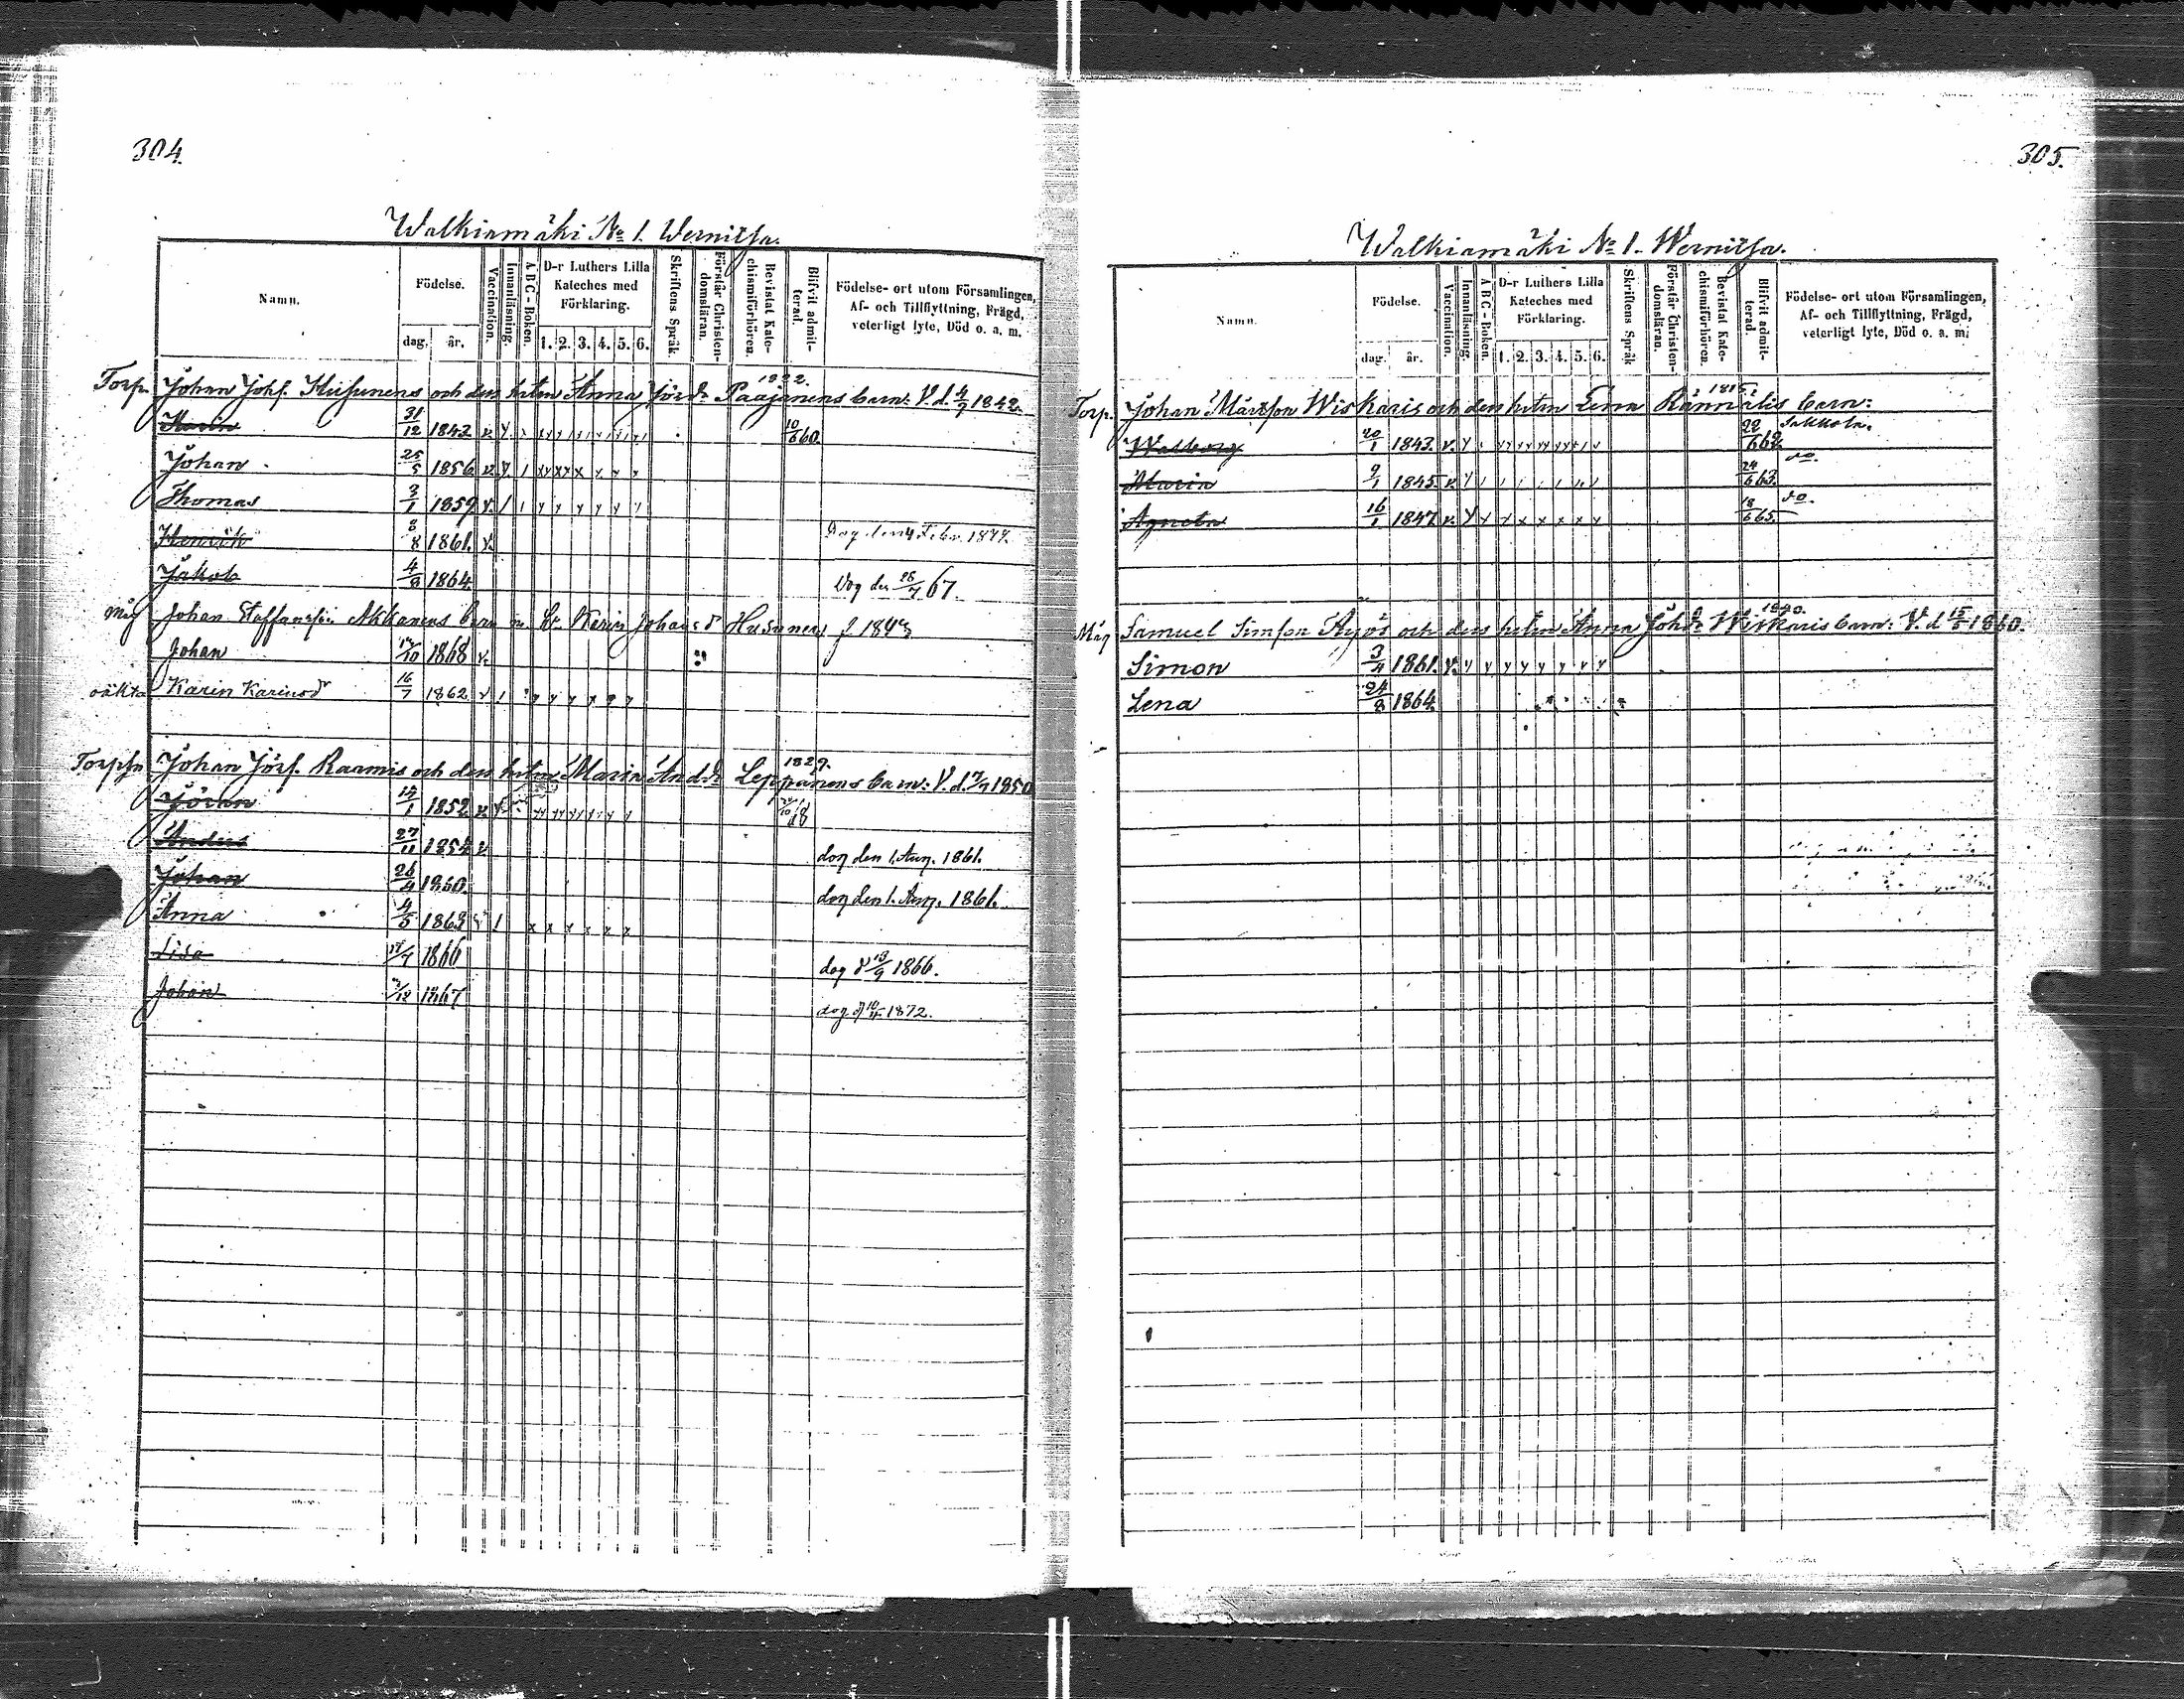 304.
Walkiamäki No 1. Wernitsa.
Namn.
Födelse.
dag. år.
Vaccination.
Innanläsning.
A B C - Boken.
D-r Luthers Lilla Kateches med Förklaring.
1. 2. 3. 4. 5. 6.
Skriftens Språk
Förstår Christendomsläran.
Bevistat Katechismiförhören.
Blifvit admitterad.
Födelse- ort utom Församlingen, Af- och Tillflyttning, Frägd, veterligt lyte, Död o. a. m.
1822.
Torp. Johan Johs. och dess hstru Anna Jörsdr Paajanens barn: V. d. 4/7 1842.
Karin 31/12 1843 v. 10/6 60.
Johan 25/5 1856 v.
Thomas 3/1 1859 v.
Henrik 8/8 1861. v. Dog den 4 Febr. 1877.
Jakob 4/8 1864. Dog den 28/7 67.
Måg Johan Staffansson Akkanens barn m. h. Karin Johansdr Husunen f. 1843
Johan 1868 v.
oäkta Karin Karinsdr 16/7 1862 v
1829.
Johan Jörs. Raamis och dess hstru Maria Andsdr Leppänens barn: V. d. 7/7 1850
Jöran 14/1 1852 v.
Anders 27/11 1854 v. dog den 1. Aug. 1861.
Johan 26/4 1860. dog den 1. Aug. 1861.
Anna 4/5 1863
Lisa 1866 dog d 13/9 1866.
Johan 1867 dog d 1872.
305.
Walkiamäki No 1. Wernitsa.
Namn.
Födelse.
dag. år.
Vaccination.
Innanläsning.
A B C - Boken.
D-r Luthers Lilla Kateches med Förklaring.
1. 2. 3. 4. 5. 6.
Skriftens Språk
Förstår Christendomsläran.
Bevistat Katechismiförhören.
Blifvit admitterad.
Födelse- ort utom Församlingen, Af- och Tillflyttning, Frägd, veterligt lyte, Död o. a. m.
1815.
Torp. Johan Mårtson Wiskaris och dess hstru Lena Rännälis barn:
Walborg 20/1 1843. v. 22/6 62. Sakkola.
Maria 9/1 1845. v. 24/6 63. do.
Agneta 16/1 1847. v. 18/6 65. do.
1840.
Måg Samuel Simson Äyös och dess hstru Anna Johsdr Wiskaris barn: V. d. 15/6 1860.
Simon 3/4 1861. v.
Lena 24/8 1864.